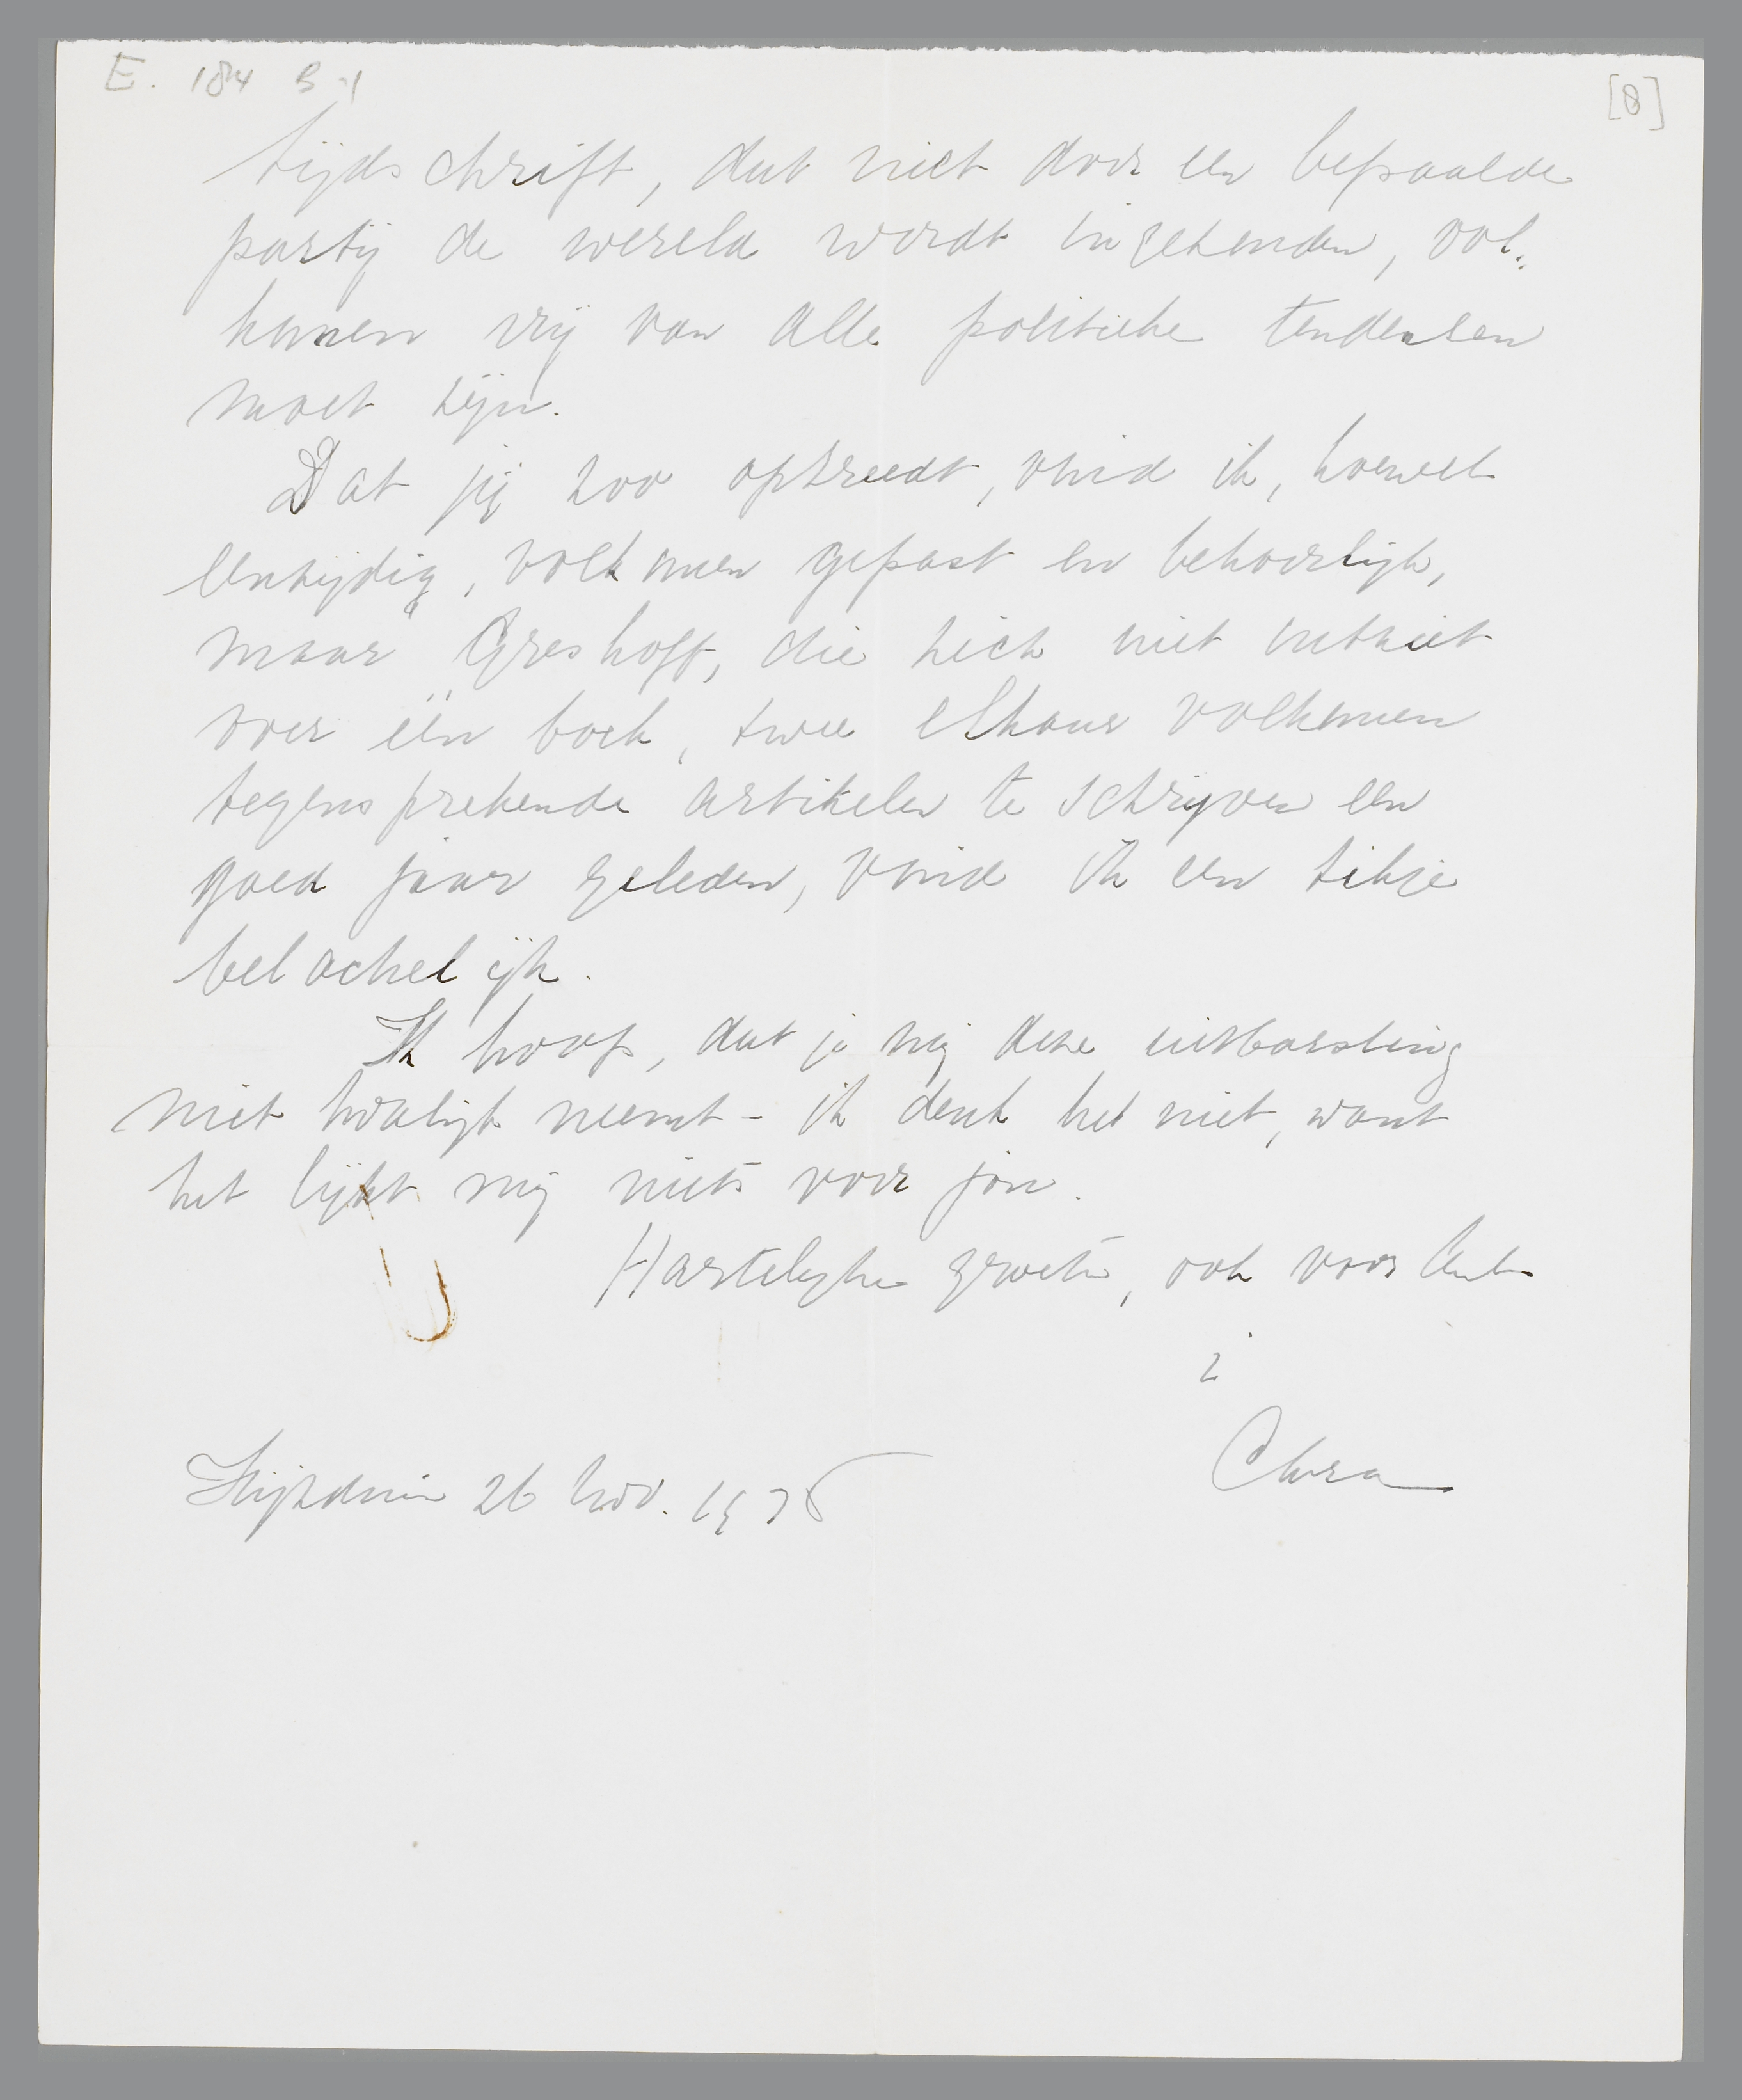 E. 184 S 1
[8]
tijdschrift, dat niet door een bepaalde
partij de wereld wordt ingezonden, vol-
komen vrij van alle politieke tendensen
moet zijn.
Dat jij zoo optreedt, vind ik, hoewel
eenzijdig, volkomen gepast en behoorlijk,
maar Greshoff, die zich niet ontziet
over één boek, twee elkaar volkomen
tegensprekende artikelen te schrijven een
goed jaar geleden, vind ik een tikje
belachelijk.
Ik hoop, dat je mij deze uitbarsting
niet kwalijk neemt - ik denk het niet, want
het lijkt mij niets voor jou.
Hartelijke groeten, ook voor Ant
Clara
26 Nov.